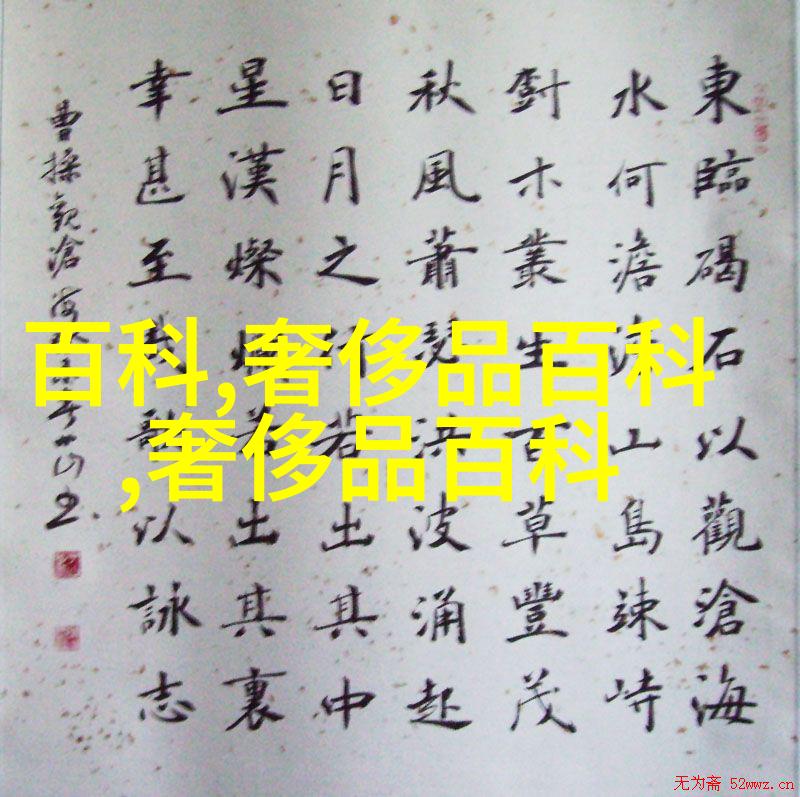 東臨碣石以觀滄海
水何澹山島竦峙
木叢生百草豐茂
秋風蕭瑟洪波涌起
日月之行若出其中
星漢燦爛若出其裏
幸甚至哉歌以詠志
曹操觀滄海
百科,奢侈品百科
,奢侈品百科
无为斋 52wwz.cn